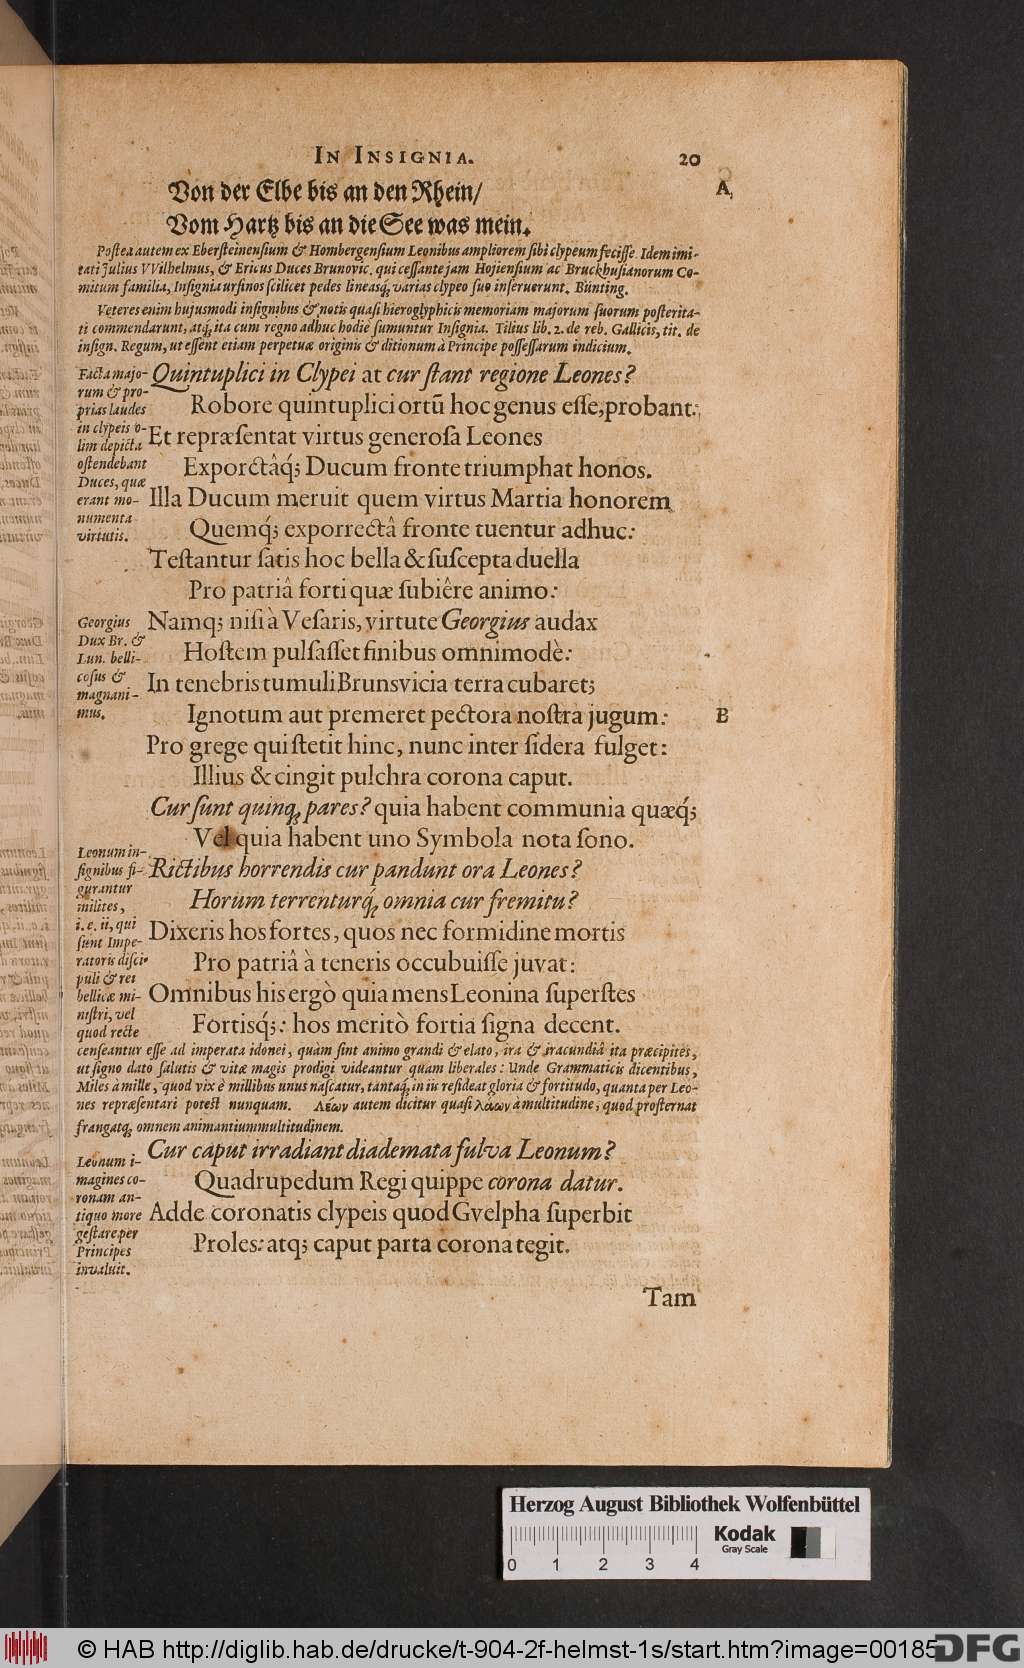 IN INSIGNIA. 20
Von der Elbe bis an den Rhein/
A
Vom Hartz bis an die See was mein.
Postea autem ex Ebersteinensium & Hombergensium Leonibus ampliorem sibi clypeum fecisse. Idem imi-
tati Julius VVilhelmus, & Ericus Duces Brunovic. qui cessante jam Hojensium ac Bruckhusianorum Co-
mitum familia, Insignia ursinos scilicet pedes lineasq; varias clypeo suo inseruerunt. Bünting.
Veteres enim hujusmodi insignibus & notis quasi hieroglyphicis memoriam majorum suorum posterita-
ti commendarunt, atq; ita cum regno adhuc hodie sumuntur Insignia. Tilius lib. 2. de reb. Gallicis, tit. de
insign. Regum, ut essent etiam perpetuæ originis & ditionum à Principe possessarum indicium.
Facta majo-
rum & pro-
prias laudes
in clypeis o-
lim depicta
ostendebant
Duces, quæ
erant mo-
numenta
virtutis.
Quintuplici in Clypei at cur stant regione Leones?
Robore quintuplici ortū hoc genus esse, probant:
Et repræsentat virtus generosa Leones
Exporctâq́; Ducum fronte triumphat honos.
Illa Ducum meruit quem virtus Martia honorem
Quemq́; exporrectâ fronte tuentur adhuc:
Testantur satis hoc bella & suscepta duella
Pro patriâ forti quæ subiêre animo:
Georgius
Dux Br. &
Lun. belli-
cosus &
magnani-
mus.
Namq; nisi à Vesaris, virtute Georgius audax
Hostem pulsasset finibus omnimodè:
In tenebris tumuli Brunsvicia terra cubaret;
Ignotum aut premeret pectora nostra jugum:
B
Pro grege qui stetit hinc, nunc inter sidera fulget:
Illius & cingit pulchra corona caput.
Cur sunt quinq; pares? quia habent communia quæq́;
Vel quia habent uno Symbola nota sono.
Leonum in-
signibus fi-
gurantur
milites,
i. e. ii, qui
sunt Impe-
ratoris disci-
puli & rei
bellicæ mi-
nistri, vel
quod recte
Rictibus horrendis cur pandunt ora Leones?
Horum terrenturq́; omnia cur fremitu?
Dixeris hos fortes, quos nec formidine mortis
Pro patriâ à teneris occubuisse juvat:
Omnibus his ergò quia mens Leonina superstes
Fortisq́;: hos meritò fortia signa decent.
censeantur esse ad imperata idonei, quàm sint animo grandi & elato, ira & iracundiâ ita præcipites,
ut signo dato salutis & vitæ magis prodigi videantur quam liberales: Unde Grammaticis dicentibus,
Miles à mille, quod vix è millibus unus nascatur, tantaq; in iis resideat gloria & fortitudo, quanta per Leo-
nes repræsentari potest nunquam. Λέων autem dicitur quasi λάων à multitudine, quod prosternat
frangatq; omnem animantium multitudinem.
Leonum i-
magines co-
ronam an-
tiquo more
gestare per
Principes
invaluit.
Cur caput irradiant diademata fulva Leonum?
Quadrupedum Regi quippe corona datur.
Adde coronatis clypeis quod Gvelpha superbit
Proles: atq; caput parta corona tegit.
Tam
Herzog August Bibliothek Wolfenbüttel
Kodak
Gray Scale
0 1 2 3 4
© HAB http://diglib.hab.de/drucke/t-904-2f-helmst-1s/start.htm?image=00185
DFG